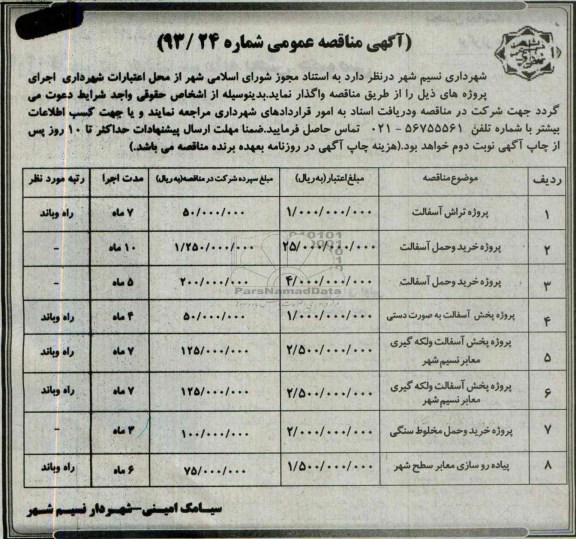 (آگهی مناقصه عمومی شماره ۲۴ /۹۳)
شهرداری نسیم شهر درنظر دارد به استناد مجوز شورای اسلامی شهر از محل اعتبارات شهرداری اجرای
پروژه های ذیل را از طریق مناقصه واگذار نماید.بدینوسیله از اشخاص حقوقی واجد شرایط دعوت می
گردد جهت شرکت در مناقصه ودریافت اسناد به امور قراردادهای شهرداری مراجعه نمایند و یا جهت کسب اطلاعات
بیشتر با شماره تلفن ۵۶۷۵۵۵۶۱ - ۰۲۱ تماس حاصل فرمایید.ضمنا مهلت ارسال پیشنهادات حداکثر تا ۱۰ روز پس
از چاپ آگهی نوبت دوم خواهد بود.(هزینه چاپ آگهی در روزنامه بعهده برنده مناقصه می باشد.)
ردیف موضوع مناقصه مبلغ اعتبار (به ریال) مبلغ سپرده شرکت در مناقصه(به ریال) مدت اجرا رتبه مورد نظر
۱ پروژه تراش آسفالت ۱/۰۰۰/۰۰۰/۰۰۰ ۵۰/۰۰۰/۰۰۰ ۷ ماه راه وباند
۲ پروژه خرید وحمل آسفالت ۲۵/۰۰۰/۰۰۰/۰۰۰ ۱/۲۵۰/۰۰۰/۰۰۰ ۱۰ ماه -
۳ پروژه خرید وحمل آسفالت ۴/۰۰۰/۰۰۰/۰۰۰ ۲۰۰/۰۰۰/۰۰۰ ۵ ماه -
ParsNamadData
۴ پروژه پخش آسفالت به صورت دستی ۱/۰۰۰/۰۰۰/۰۰۰ ۵۰/۰۰۰/۰۰۰ ۴ ماه راه وباند
۵ پروژه پخش آسفالت ولکه گیری معابر نسیم شهر ۲/۵۰۰/۰۰۰/۰۰۰ ۱۲۵/۰۰۰/۰۰۰ ۷ ماه راه وباند
۶ پروژه پخش آسفالت ولکه گیری معابر نسیم شهر ۲/۵۰۰/۰۰۰/۰۰۰ ۱۲۵/۰۰۰/۰۰۰ ۷ ماه راه وباند
۷ پروژه خرید وحمل مخلوط سنگی ۲/۰۰۰/۰۰۰/۰۰۰ ۱۰۰/۰۰۰/۰۰۰ ۳ ماه -
۸ پیاده رو سازی معابر سطح شهر ۱/۵۰۰/۰۰۰/۰۰۰ ۷۵/۰۰۰/۰۰۰ ۶ ماه راه وباند
سیامک امینی-شهردار نسیم شهر